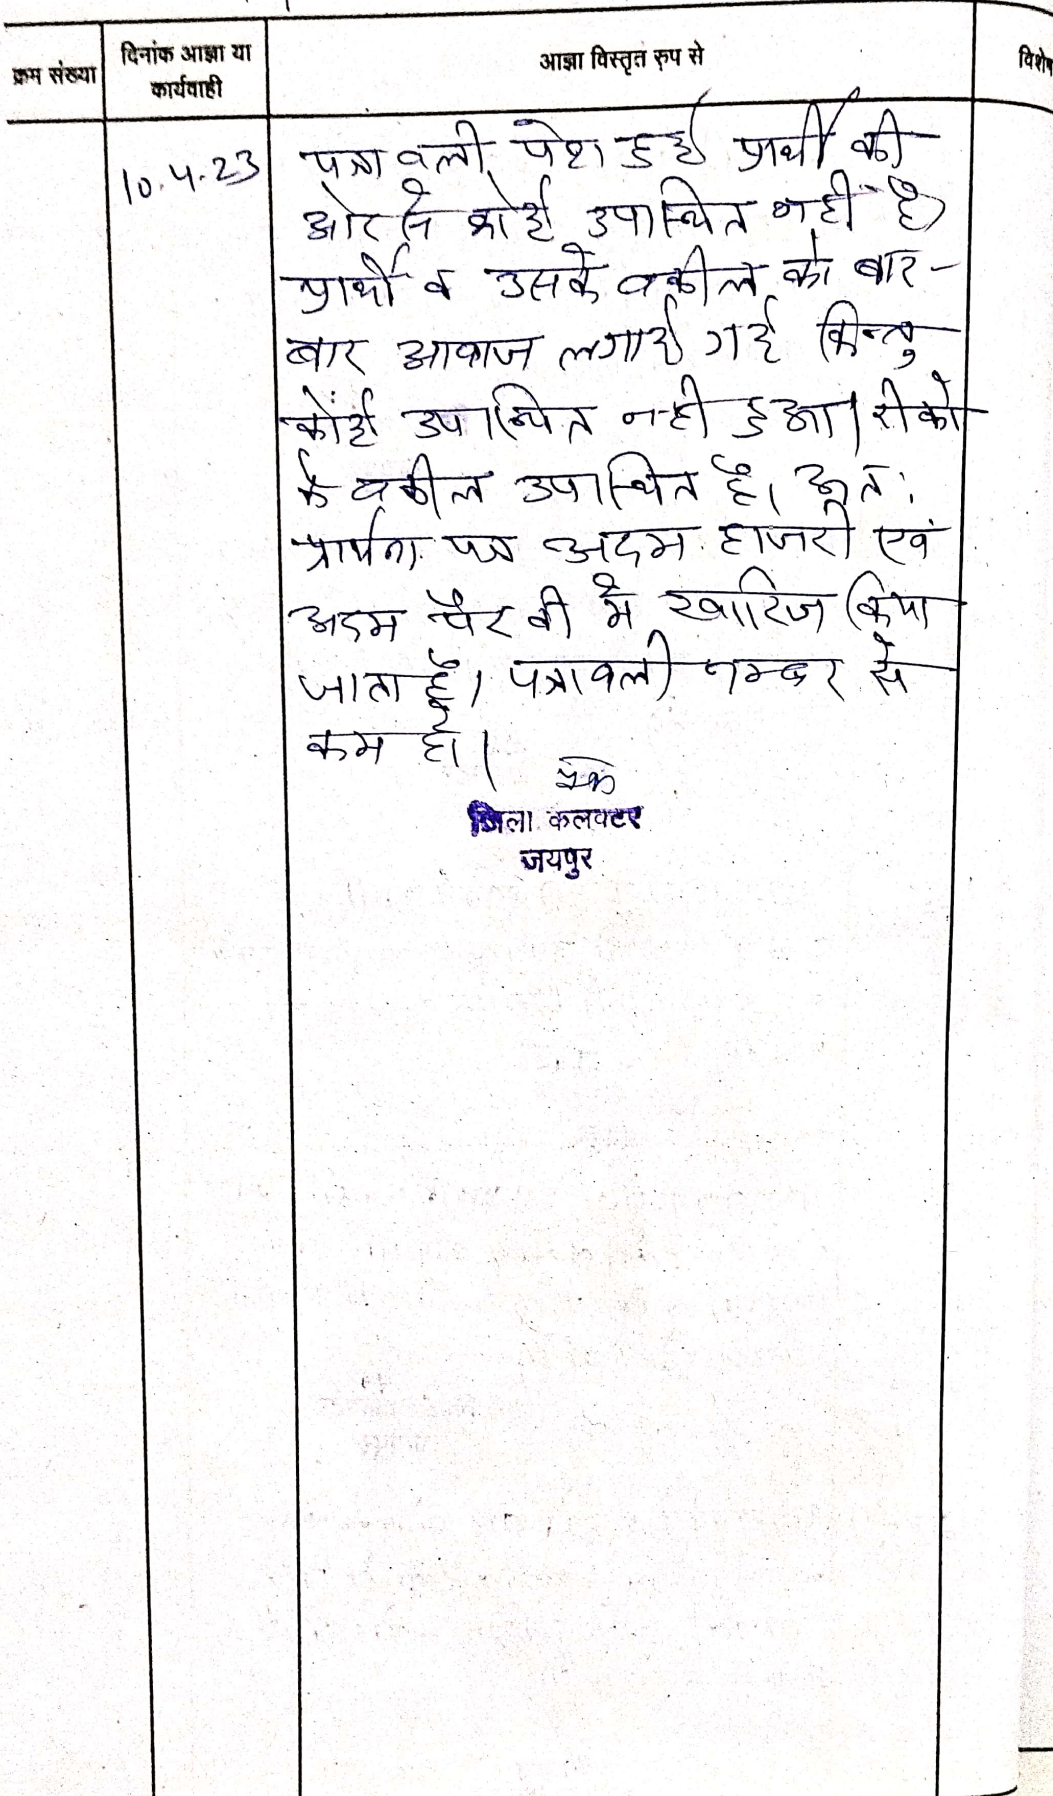 क्रम संख्या
दिनांक आज्ञा या
कार्यवाही
आज्ञा विस्तृत रुप से
विशेष
10.4.23
पत्रावली पेश हुई प्रार्थी की
ओर से कोई उपस्थित नही है
प्रार्थी व उसके वकील को बार-
बार आवाज लगाई गई किन्तु
कोई उपस्थित नही हुआ। रीको
के वकील उपस्थित है। अत:
प्रार्थना पत्र अदम हाजरी एवं
अदम पैरवी मे खारिज किया
जाता है। पत्रावली नम्बर से
कम हो।
जिला कलक्टर
जयपुर